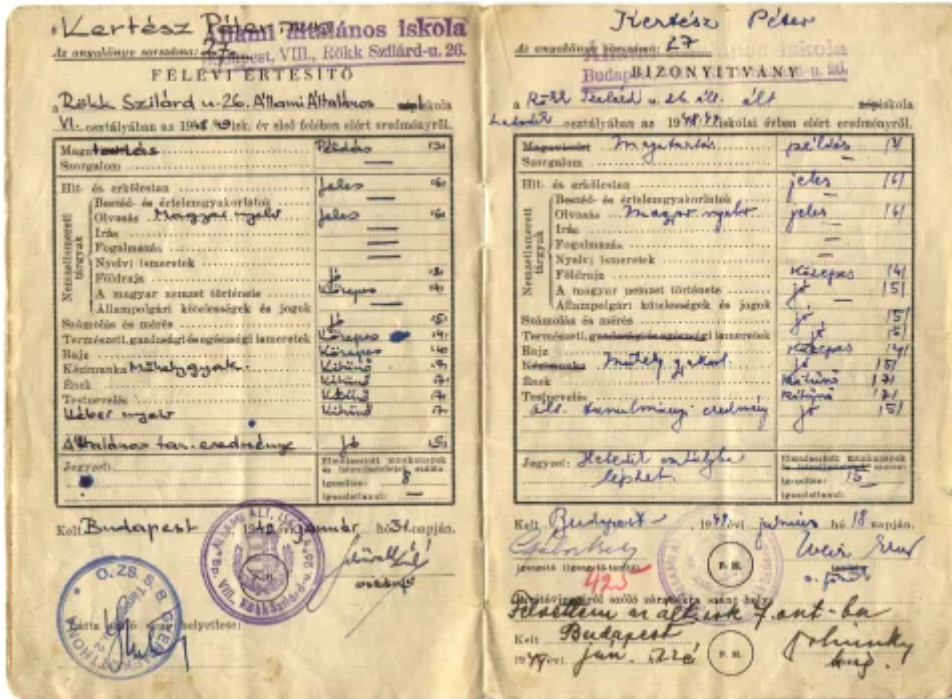 Kertész Péter
általános iskola
Az anyakönyv sorszáma: 27
Budapest, VIII., Rökk Szilárd-u. 26.
FÉLÉVI ÉRTESÍTŐ
a Rökk Szilárd u. 26. Állami Általános iskola
VI. osztályában az 1948/49 isk. év első felében elért eredményről.
Magatartás Példás /3/
Szorgalom —
Hit- és erkölcstan jeles /6/
Nemzetismereti tárgyak
Beszéd- és értelemgyakorlatok —
Olvasás Magyar nyelv jeles /6/
Írás —
Fogalmazás —
Nyelvi ismeretek —
Földrajz jó /5/
A magyar nemzet története Közepes /4/
Állampolgári kötelességek és jogok —
Számolás és mérés jó /5/
Természeti, gazdasági és egészségi ismeretek Közepes /4/
Rajz Közepes /4/
Kézimunka Műhelygyak. Kitünő /7/
Ének Kitünő /7/
Testnevelés Kitünő /7/
Héber nyelv Kitünő /7/
Általános tan. eredménye jó /5/
Jegyzet:
Elmulasztott munkanapok és istentiszteletek száma
igazoltan: 8
igazolatlanul: —
Kelt Budapest 1949 évi január hó 31. napján.
ÁLLAMI ÁLT. ISKOLA
Bp. VIII. Rökk Szilárd-u. 26.
P. H.
O. ZS. S. B. GYERMEKOTTHONA
Látta szülő vagy helyettese:
Kertész Péter
Az anyakönyv sorszáma: 27
Állami általános iskola
Budapest, VIII., Rökk Szilárd-u. 26.
BIZONYÍTVÁNY
a Rökk Szilárd u. 26. áll. ált. iskola
osztályában az 1948/49 iskolai évben elért eredményről.
Magaviselet Magatartás példás /3/
Szorgalom —
Hit- és erkölcstan jeles /6/
Nemzetismereti tárgyak
Beszéd- és értelemgyakorlatok —
Olvasás Magyar nyelv jeles /6/
Írás —
Fogalmazás —
Nyelvi ismeretek
Földrajz Közepes /4/
A magyar nemzet története jó /5/
Állampolgári kötelességek és jogok —
Számolás és mérés jó /5/
Természeti, gazdasági és egészségi ismeretek jó /5/
Rajz Közepes /4/
Kézimunka Műhely gyakorl. jó /5/
Ének Kitünő /7/
Testnevelés Kitünő /7/
Ált. tanulmányi eredmény jó /5/
Jegyzet: Hetedik osztályba
léphet.
Elmulasztott munkanapok
igazoltan: 15
igazolatlanul:
Kelt Budapest, 1949 évi június hó 18 napján.
igazgató (igazgató-tanító)
425
P. H.
szóló záradékra szánt hely:
Felvettem az ált. isk. 7. oszt.-ba
Kelt Budapest,
1949 évi jún.
P. H.